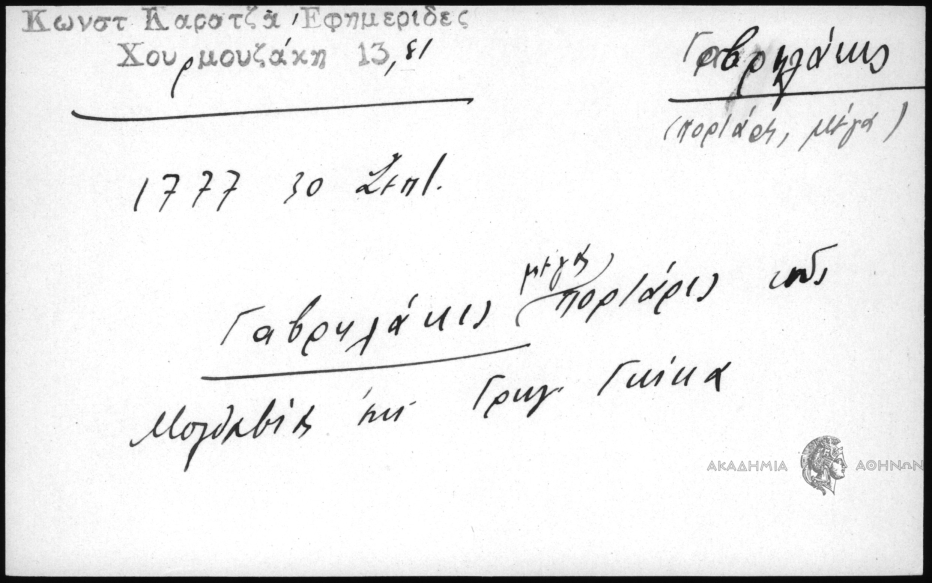 Κωνστ Καρατζά Εφημερίδες
Χουρμουζάκη 13, 81
Γαβρηλάκης
(πορτάρης, μέγας)
1777 30 Σεπτ.
μέγας
Γαβρηλάκης πορτάρις
Μολδαβίας επι Γρηγ. Γκίκα
ΑΚΑΔΗΜΙΑ ΑΘΗΝΩΝ